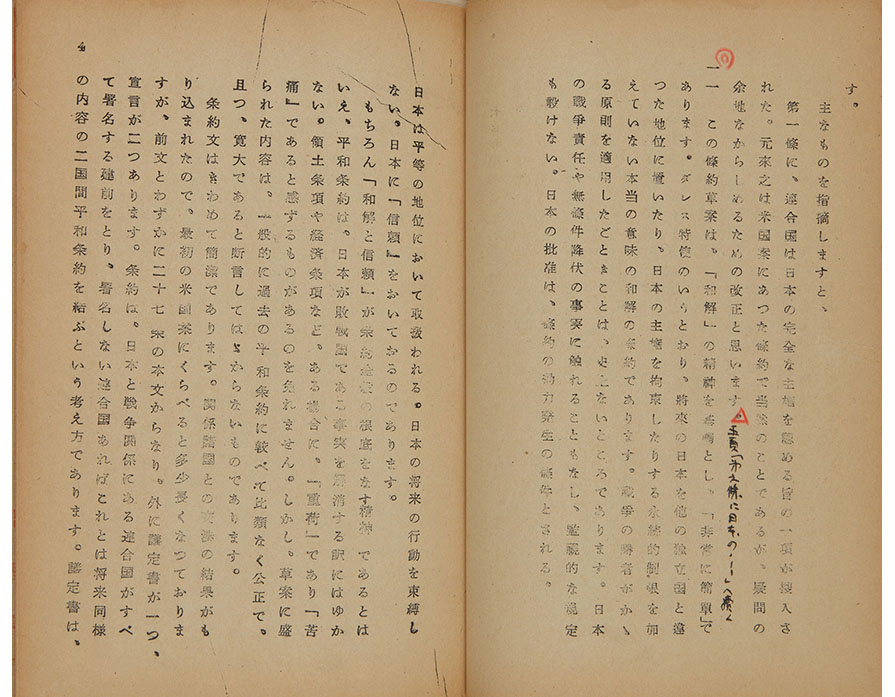 す。
主なものを指摘しますと、
第一條に、連合国は日本の完全な主権を認める旨の一項が挿入さ
れた。元來之は米国案にあつた條約で当然のことであるが、疑問の
余地なからしめるための改正と思います。
頁「第 條に日本の……」へ続く
一一 この條約草案は、「和解」の精神を基調とし、「非常に簡單」で
あります。ダレス特使のいうとおり、將來の日本を他の独立国と違
つた地位に置いたり、日本の主権を拘束したりする永続的制限を加
えていない本当の意味の和解の條約であります。戰爭の勝者がかゝ
る原則を適用したごときことは、史上ないところであります。日本
の戰爭責任や無條件降伏の事実に触れることもなし、監視的な規定
も設けない。日本の批准は、條約の効力発生の條件とされる。
日本は平等の地位において取扱われる。日本の将来の行動を束縛し
ない。日本に「信頼」をおいておるのであります。
もちろん「和解と信頼」が条約全般の根底をなす精神 であるとは
いえ、平和条約は、日本が敗戦国である事実を解消する訳にはゆか
ない。領土条項や経済条項など、ある場合に、「重荷」であり「苦
痛」であると感ずるものがあるのを免れません。しかし。草案に盛
られた内容は、一般的に過去の平和条約に較べて比類なく公正で。
且つ、寛大であると断言してはゞからないものであります。
条約文はきわめて簡潔であります。関係諸国との交渉の結果がも
り込まれたので、最初の米国案にくらべると多少長くなつておりま
すが、前文とわずかに二十七条の本文からなり。外に議定書が一つ、
宣言が二つあります。条約は。日本と戦争関係にある連合国がすべ
て署名する建前をとり、署名しない連合国あればこれとは将来同様
の内容の二国間平和条約を結ぶという考え方であります。議定書は、
4